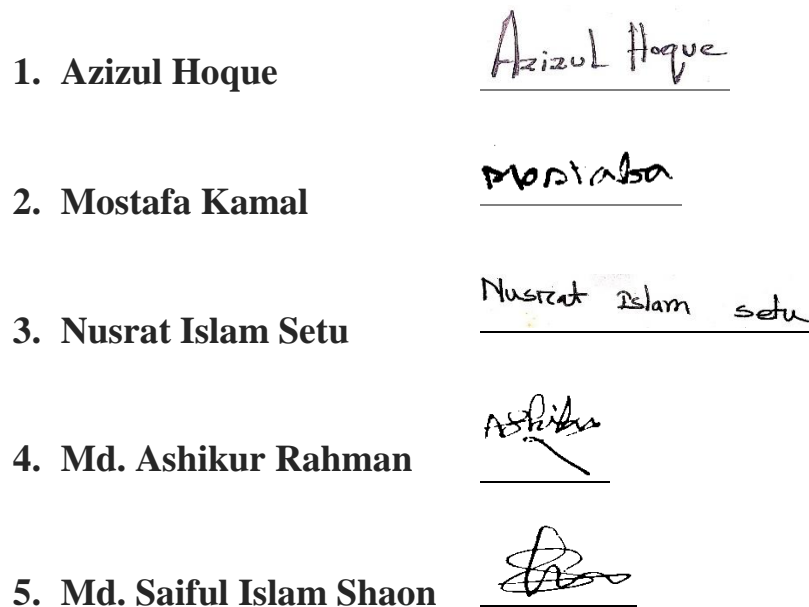 1. Azizul Hoque Azizul Hoque
2. Mostafa Kamal
3. Nusrat Islam Setu Nusrat Islam setu
4. Md. Ashikur Rahman
5. Md. Saiful Islam Shaon